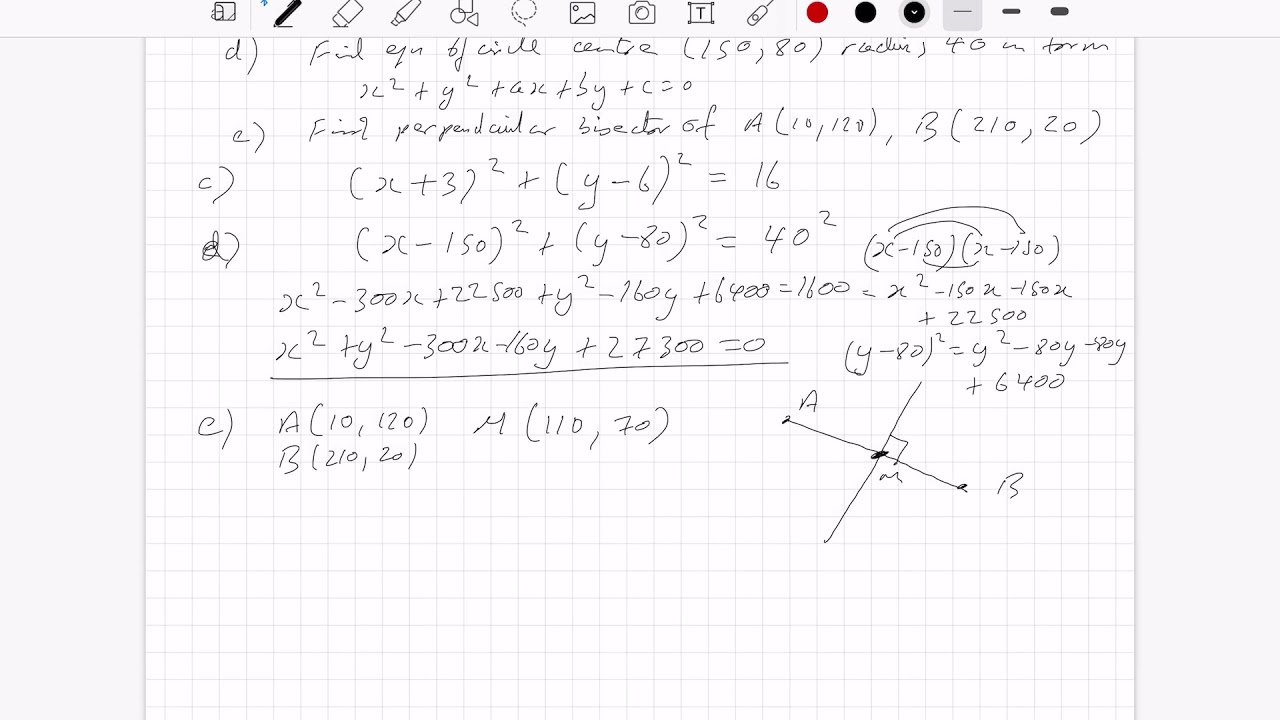 d) Find eqn of circle centre (150, 80) radius 40 in form
x² + y² + ax + by + c = 0
e) Find perpendicular bisector of A(10, 120), B(210, 20)
c) (x+3)² + (y-6)² = 16
d) (x-150)² + (y-80)² = 40²
(x-150)(x-150)
x² - 300x + 22500 + y² - 160y + 6400 = 1600
= x² - 150x - 150x
+ 22500
x² + y² - 300x - 160y + 27300 = 0
(y-80)² = y² - 80y - 80y
+ 6400
e) A(10, 120) M(110, 70)
B(210, 20)
A
M
B
T